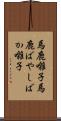 馬鹿囃子馬
鹿ばやしば
か囃子